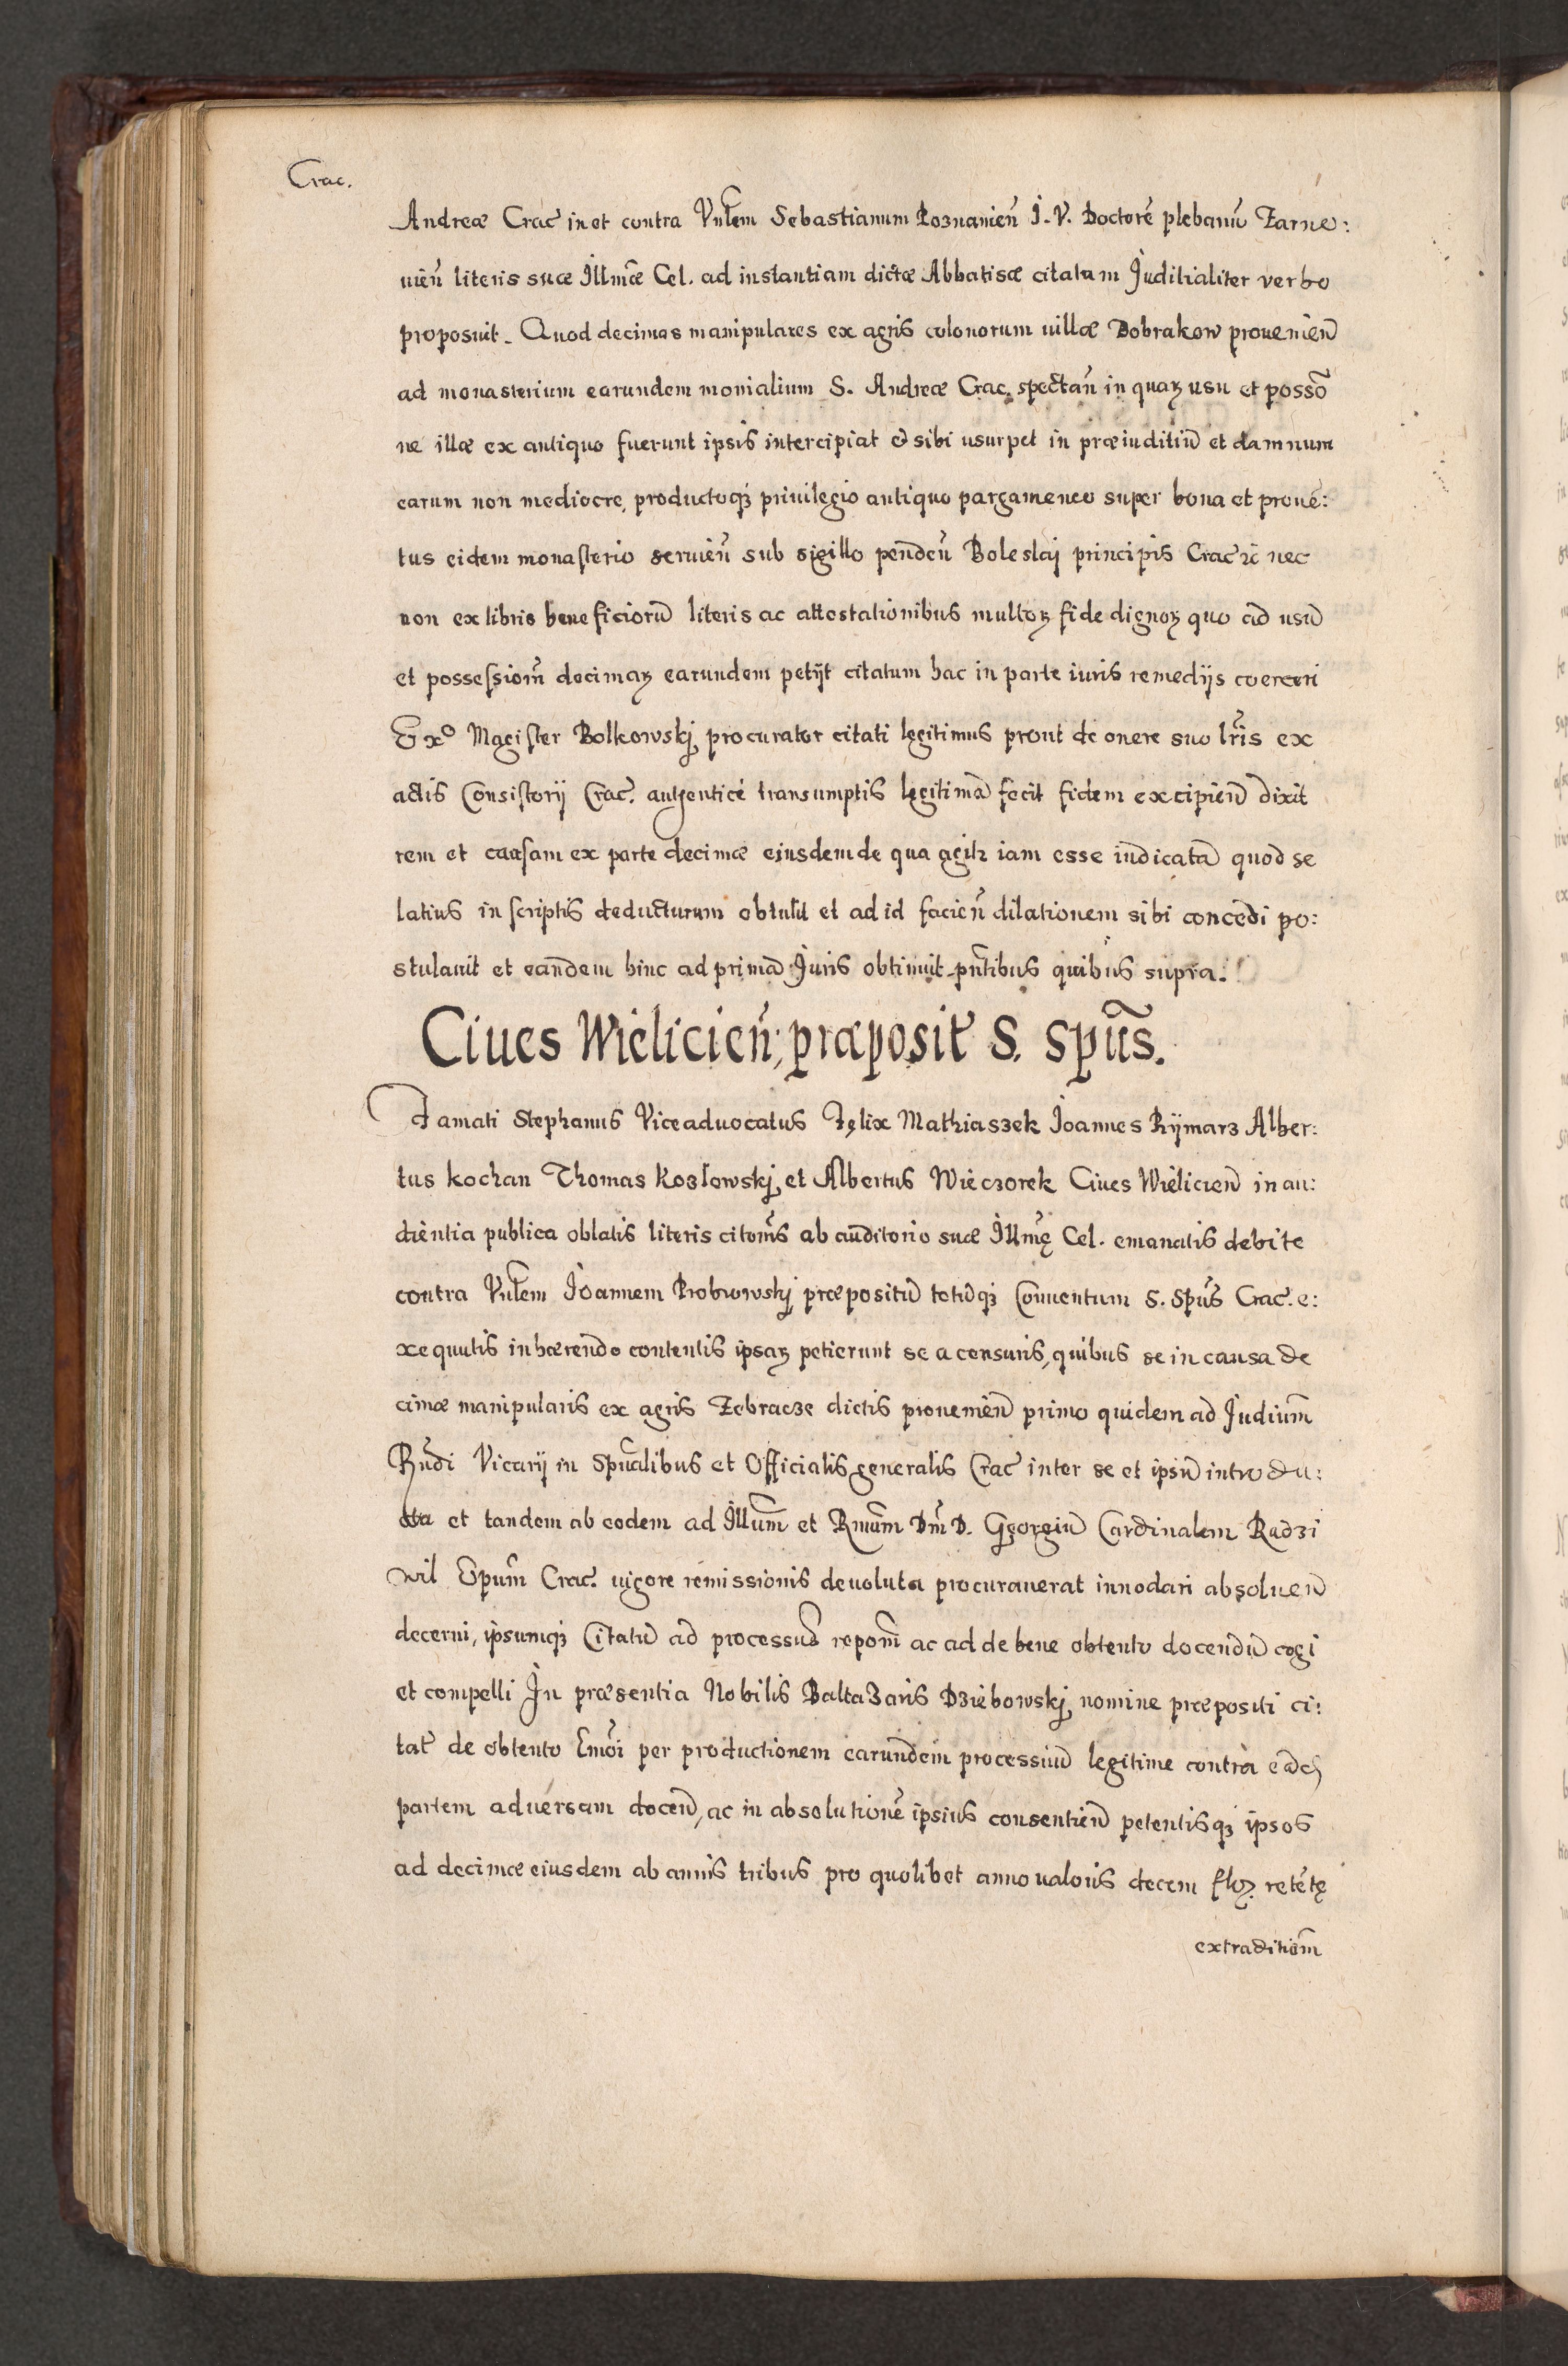 Crac.
Andreæ Crac̃ in et contra Vñlem Sebastianum Poznanień I. V. Doctorẽ plebanũ Żarno:
uień literis suæ Illmæ Cel. ad instantiam dictæ Abbatisæ citatum Juditialiter verbo
proposuit. Quod decimas manipulares ex agris colonorum uillæ Dobrakow prouenieñ
ad monasterium earundem monialium S. Andreæ Crac. spectañ in quarꝫ usu et possõ
ne illæ ex antiquo fuerunt ipsis intercipiat & sibi usurpet in præiuditiũ et damnum
earum non mediocre, productoqꝫ priuilegio antiquo pargameneo super bona et prouẽ:
tus eidem monasterio seruieñ sub sigillo pendeñ Boleslaj principis Crac̃ ꝛc̃ nec
non ex libris beneficiorũ literis ac attestationibus multorꝫ fide dignorꝫ quo ad usũ
et possessiom̃ decimarꝫ earundem petijt citatum hac in parte iuris remedijs coerceri
Exo Magister Bolkowskj procurator citati legitimus prout de onere suo lr̃is ex
actis Consistorij Crac. authenticè transumptis legitimã fecit fidem excipieñ dixit
rem et causam ex parte decimæ eiusdem de qua agitꝛ iam esse iudicatã quod se
latius in scriptis deducturum obtulit et ad id facień dilationem sibi concedi po:
stulauit et eandem hinc ad primã Juris obtinuit pñtibus quibus supra.
Ciues Wielicień; præposit̃ S. Spũs.
Famati Stephanus Viceaduocatus Felix Mathiaszek Joannes Rÿmarz Alber:
tus kochan Thomas Kozłowskj et Albertus Wieczorek Ciues Wielicieñ in au:
dientia publica oblatis literis citom̃s ab auditorio suæ Illmę Cel. emanatis debite
contra Vñlem Joannem Probrowskj præpositũ totũqꝫ Conuentum S. Spũs Crac. e:
xequutis inhærendo contentis ipsarꝫ petierunt se a censuris, quibus se in causa de
cimæ manipularis ex agris Żebracze dictis prouenieñ primo quidem ad Judium̃
Rñdi Vicarij in Spũalibus et Officialis generalis Crac̃ inter se et ipsũ introdu:
cta et tandem ab eodem ad Illum̃ et Rmum̃ Dm̃ D. Georgiũ Cardinalem Radzi
wil Epum̃ Crac. uigore remissionis deuoluta procurauerat innodari absolueñ
decerni, ipsumqꝫ Citatũ ad processus reponi ac ad de bene obtento docendũ cogi
et compelli In præsentia Nobilis Baltazaris Dziebowskj nomine præpositi ci:
tat̃ de obtento Em̃oi per productionem earundem processuũ legitime contra eãd
partem aduersam doceñ, ac in absolutionẽ ipsius consentieñ petentisqꝫ ipsos
ad decimæ eiusdem ab annis tribus pro quolibet anno ualoris decem florꝫ. retẽtę
extraditiom̃